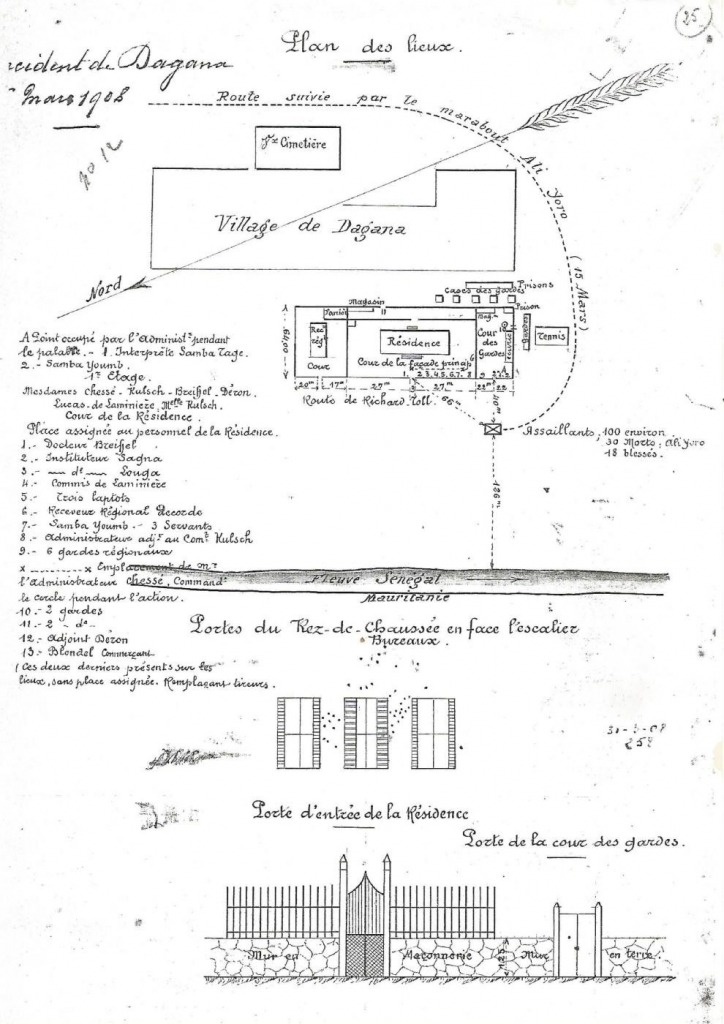 25
Plan des lieux.
ncident de Dagana
Mars 1908
No 12
Route suivie par le marabout Ali Yoro
(15 Mars)
Jx Cimetière
Village de Dagana
Nord
Prisons
Cases des gardes
Magasin
Prison
Résidence
Cour des Gardes
Tennis
Cour
Cour de la façade princip
1 2 3 4 5 6 7 8
20m 17m 27m 27m
Route de Richard Toll
66m
110m
Assaillants, 100 environ
30 Morts: Ali Yoro
18 blessés.
126m
A Point occupé par l'Administr pendant
le palabre. - 1. Interprète Samba Tage.
2. - Samba Youmb.
1er Etage.
Mesdames Chessé - Kulsch - Breiffel - Déron.
Lucas. de Laminière. Melle Kulsch.
Cour de la Résidence.
Place assignée au personnel de la Résidence.
1. - Docteur Breiffel
2. - Instituteur Sagna
3 - do Louga
4. - Commis de Laminière
5 - Trois laptots
6. - Receveur Régional Decorde
7. - Samba Youmb. - 3 Servants
8. - Administrateur adjt au Comt Kulsch
9. - 6 gardes régionaux
x ........ x Emplacement de Mr
l'administrateur Chessé, Commandt
le cercle pendant l'action.
10. - 2 gardes
11. - 2 do
12. - Adjoint Déron
13. - Blondel Commerçant
(Ces deux derniers présents sur les
lieux, sans place assignée. Remplaçant tireurs.
Fleuve Sénégal
Mauritanie
Portes du Rez-de-Chaussée en face l'escalier
Bureaux.
Porte d'entrée de la Résidence
Porte de la cour des gardes.
Mur en Maçonnerie
1.25
Mur en terre.